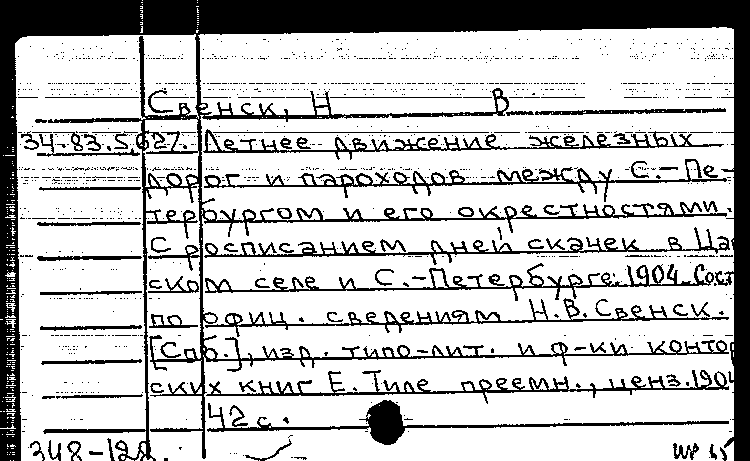 Свенск, Н В
34-83.5.627. Летнее движение железных
дорог и пароходов между С.-Пе-
тербургом и его окрестностями.
С росписанием дней скачек в Ца
ском селе и С.-Петербурге. 1904. Сост
по офиц. сведениям Н.В. Свенск.
[Спб.], изд. типо-лит. и ф-ки контор
ских книг Е. Тиле преемн., ценз. 1904
42 с.
348-128.